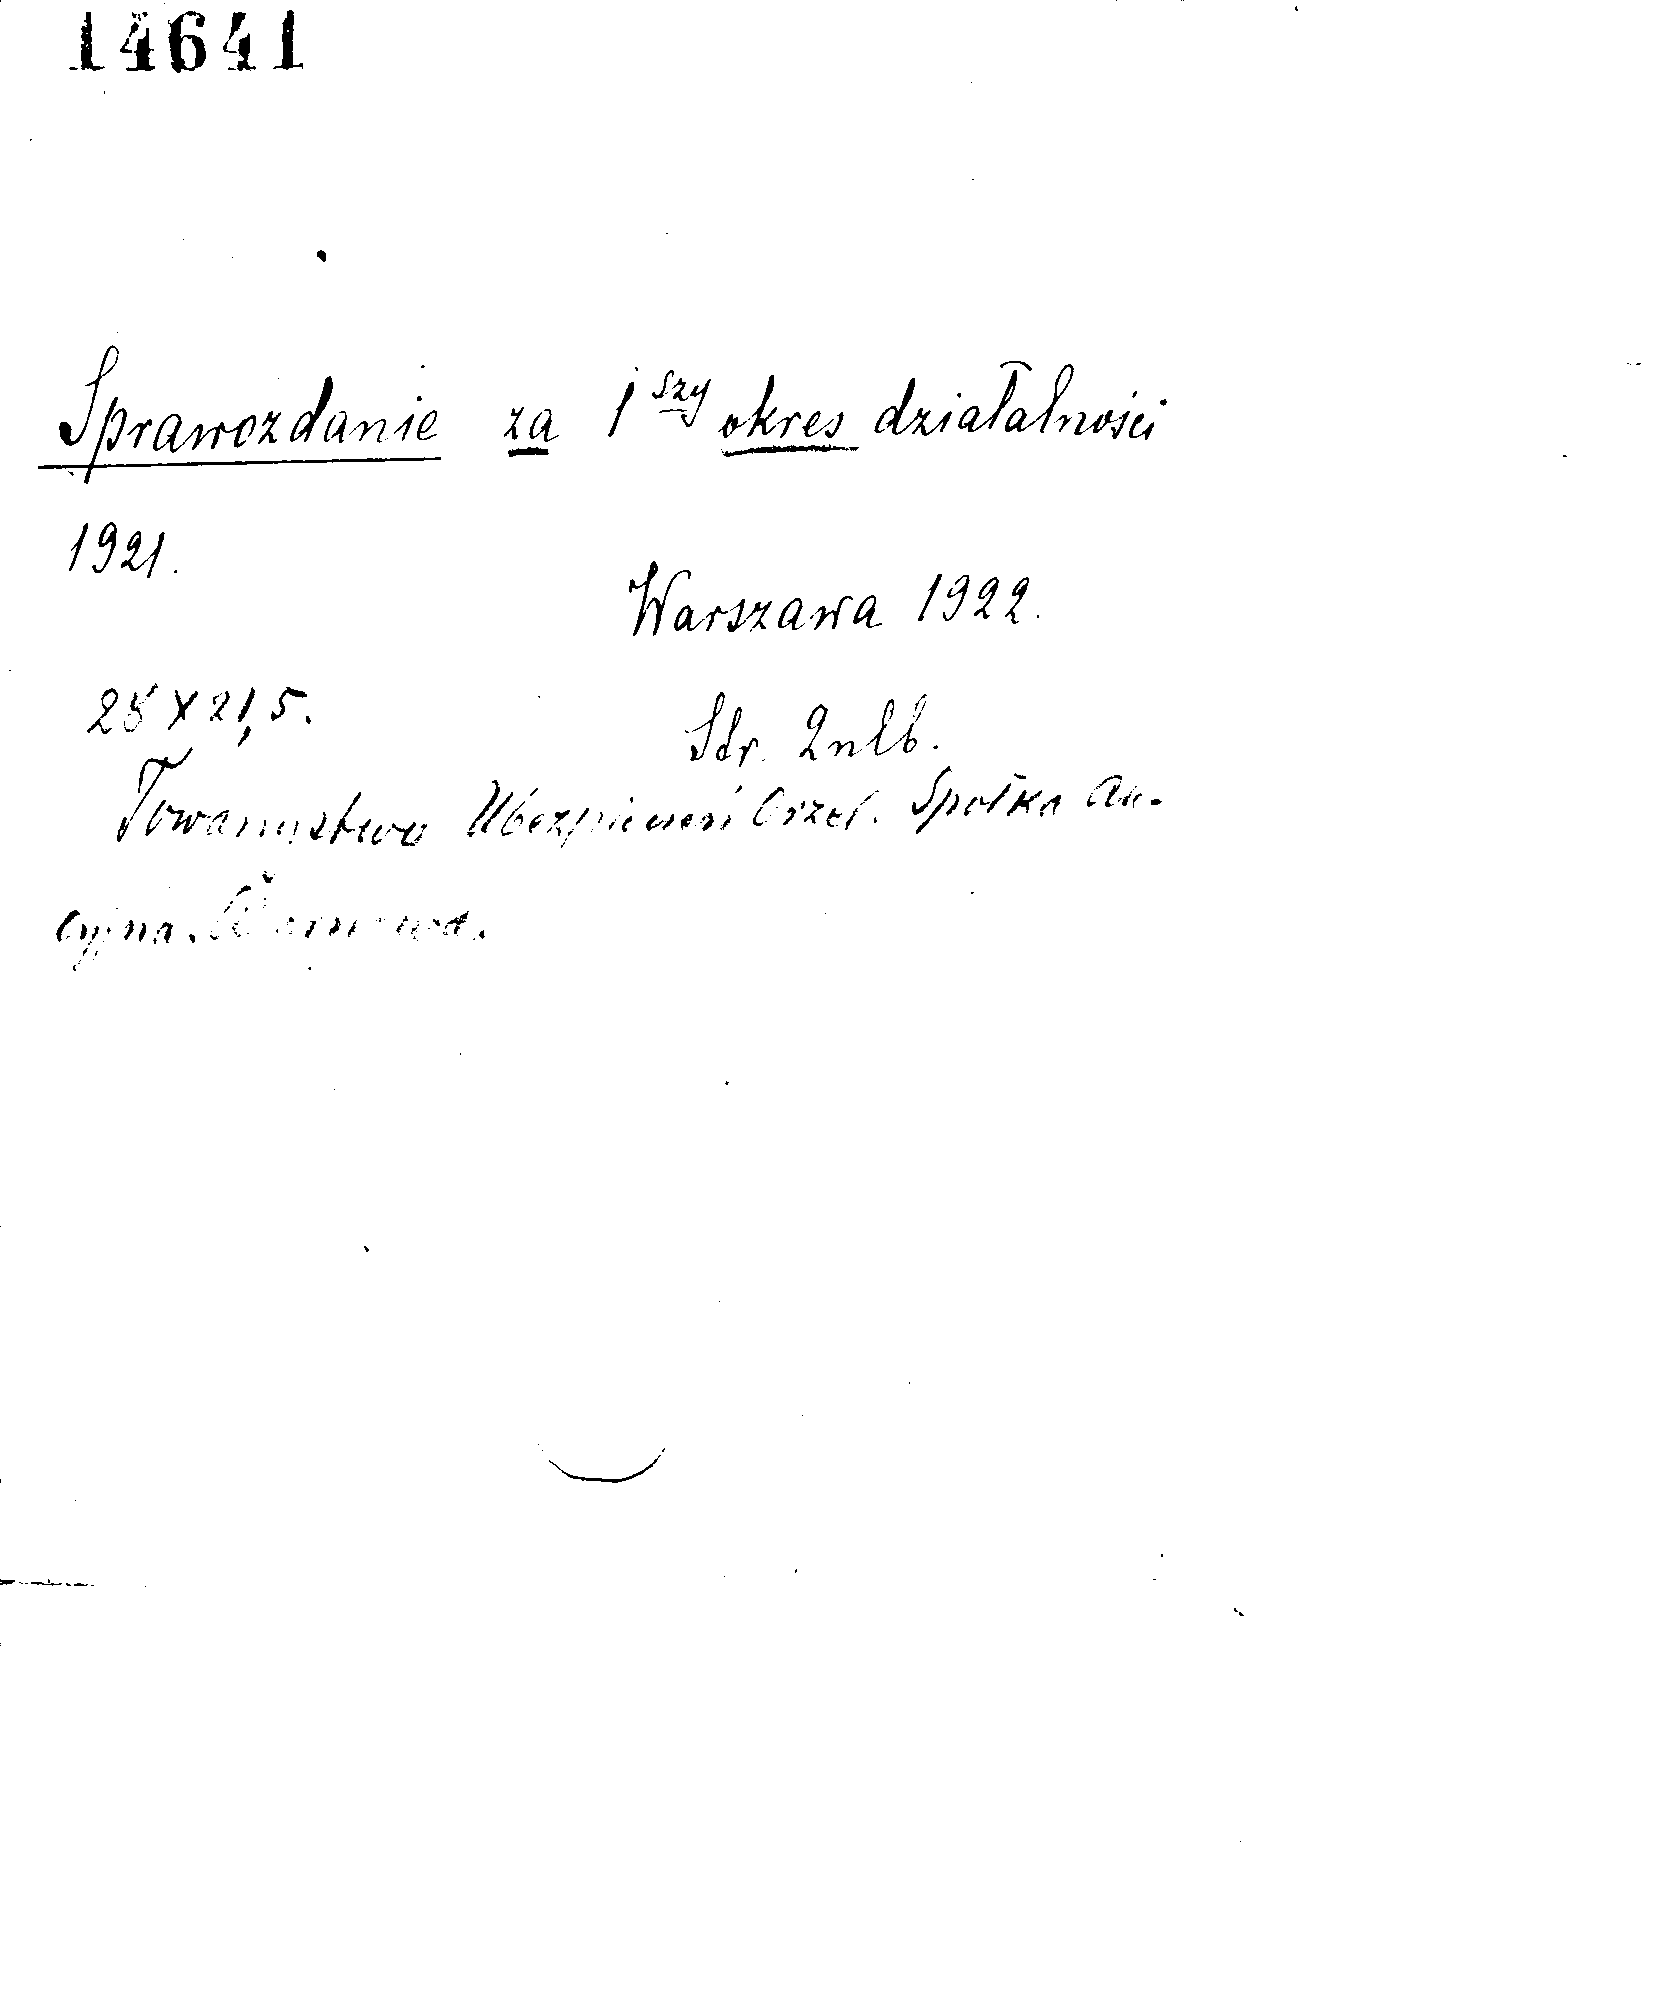 14641
Sprawozdanie za 1szy okres działalności
1921.
Warszawa 1922.
28 X 21,5.
Str. 2 nlb.
Towarzystwo Ubezpieczeń Orzeł. Spółka Ak-
cyjna. Warszawa.